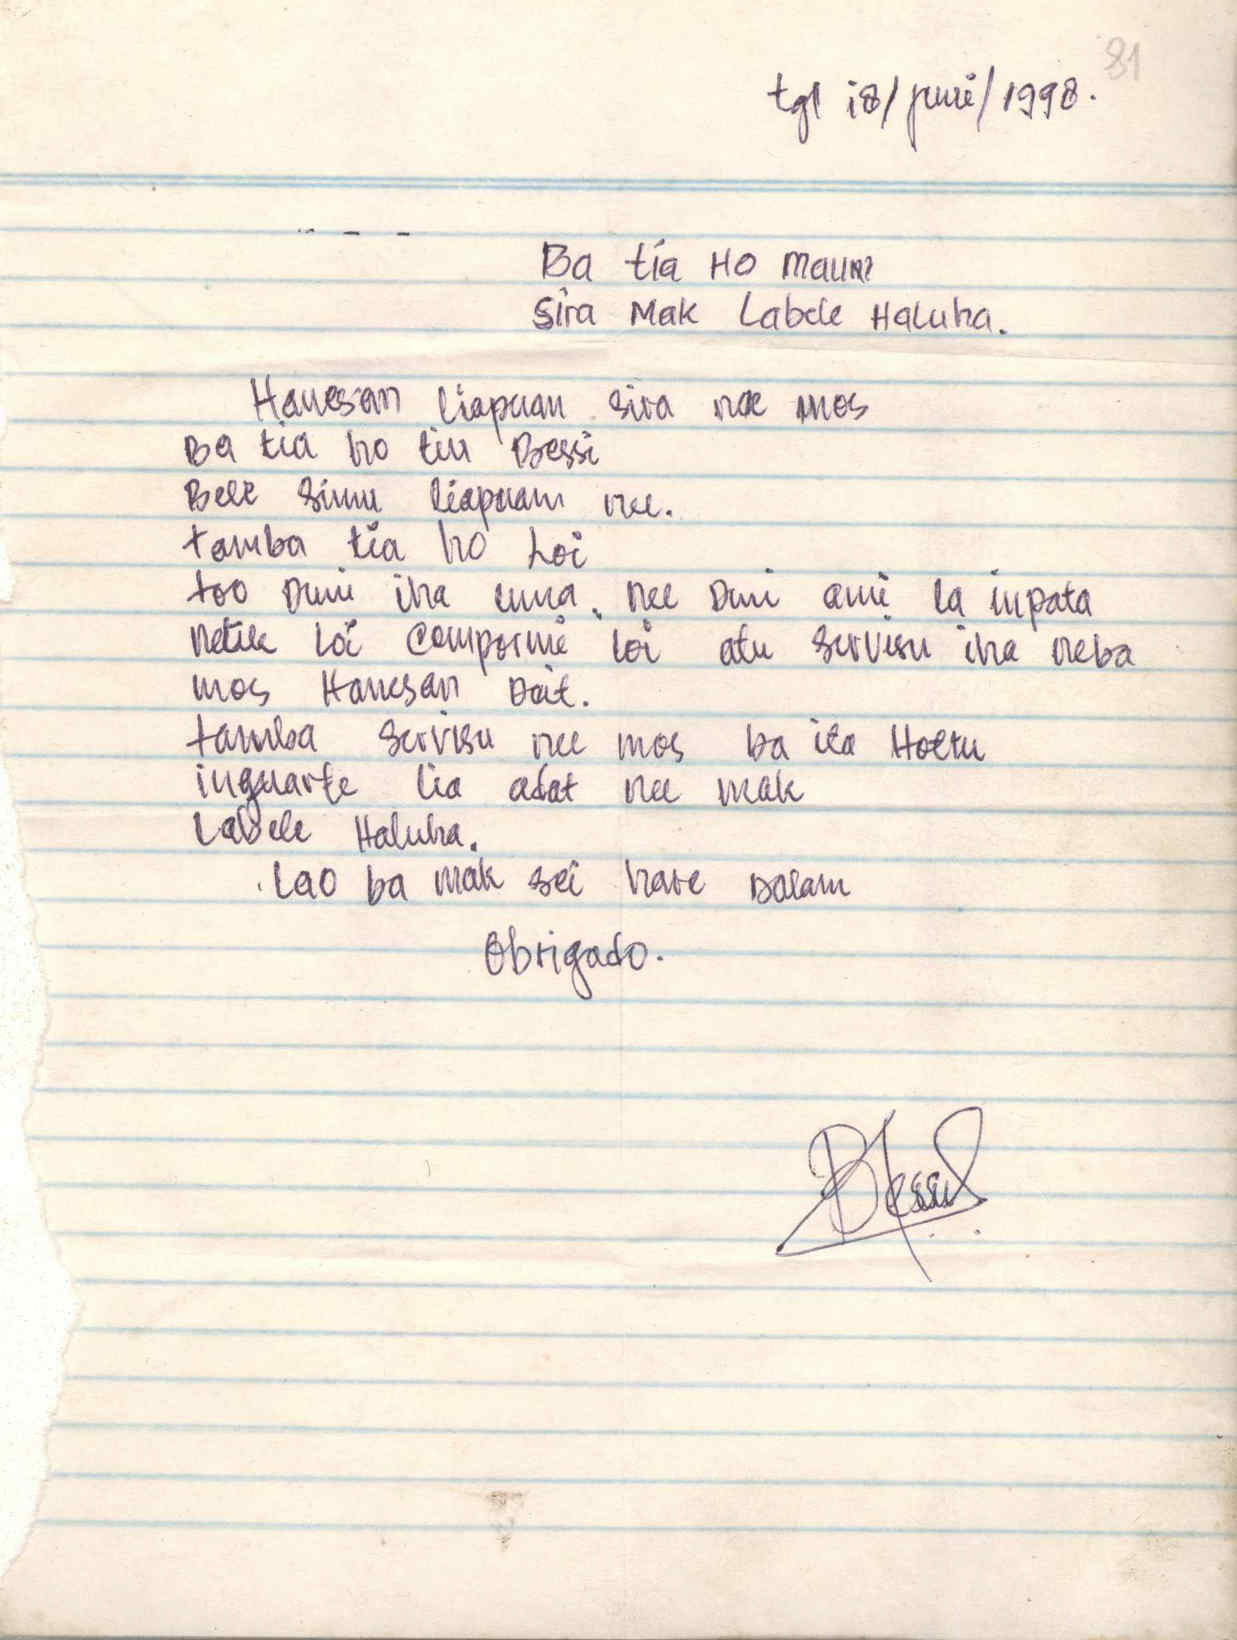 81
tgl 18/juni/1998.
- - -
Ba tia Ho maun
Sira Mak Labele Haluha.
Hanesan liapuan sira nee mos
Ba tia ho tiu Bessi
Bele simu liapuan nee.
tamba tia ho Loi
too Duni iha uma. nee Duni ami la inpata
netik Loi Comporme loi atu servisu iha neba
mos Hanesan Dait.
tamba servisu nee mos ba ita Hoetu
inguarte lia adat nee mak
Labele Haluha.
Lao ba mak sei hare Dalam
Obrigado.